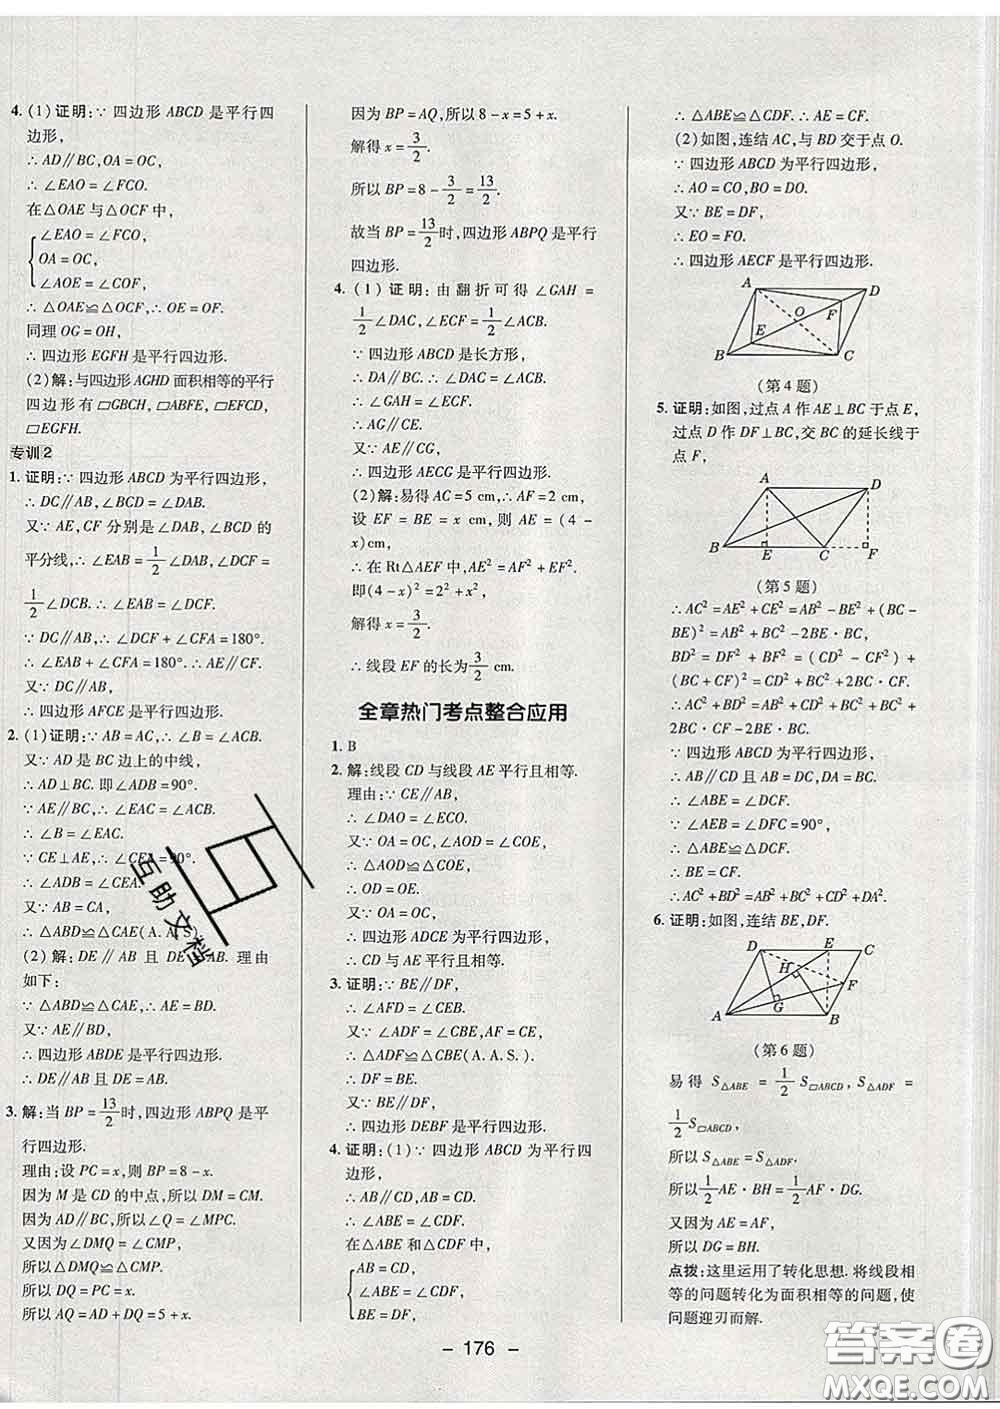 4. (1)证明:∵ 四边形 ABCD 是平行四
边形,
∴ AD∥BC,OA=OC,
∴ ∠EAO=∠FCO.
在△OAE 与△OCF 中,
∠EAO=∠FCO,
OA=OC,
∠AOE=∠COF,
∴ △OAE≌△OCF,∴ OE=OF.
同理 OG=OH,
∴ 四边形 EGFH 是平行四边形.
(2)解:与四边形 AGHD 面积相等的平行
四边形有▱GBCH,▱ABFE,▱EFCD,
▱EGFH.
专训2
1. 证明:∵ 四边形 ABCD 为平行四边形,
∴ DC∥AB,∠BCD=∠DAB.
又∵ AE,CF 分别是∠DAB,∠BCD 的
平分线,∴ ∠EAB=1/2∠DAB,∠DCF=
1/2∠DCB.∴ ∠EAB=∠DCF.
∵ DC∥AB,∴ ∠DCF+∠CFA=180°.
∴ ∠EAB+∠CFA=180°.∴ AE∥CF.
又∵ DC∥AB,
∴ 四边形 AFCE 是平行四边形.
2. (1)证明:∵ AB=AC,∴ ∠B=∠ACB.
又∵ AD 是 BC 边上的中线,
∴ AD⊥BC. 即∠ADB=90°.
∵ AE∥BC,∴ ∠EAC=∠ACB.
∴ ∠B=∠EAC.
∵ CE⊥AE,∴ ∠CEA=90°.
∴ ∠ADB=∠CEA.
又∵ AB=CA,
∴ △ABD≌△CAE(A.A.S.)
(2)解:DE∥AB 且 DE=AB. 理由
如下:
∵ △ABD≌△CAE,∴ AE=BD.
又∵ AE∥BD,
∴ 四边形 ABDE 是平行四边形.
∴ DE∥AB 且 DE=AB.
3. 解:当 BP=13/2时,四边形 ABPQ 是平
行四边形.
理由:设 PC=x,则 BP=8-x.
因为 M 是 CD 的中点,所以 DM=CM.
因为 AD∥BC,所以∠Q=∠MPC.
又因为∠DMQ=∠CMP,
所以△DMQ≌△CMP.
所以 DQ=PC=x.
所以 AQ=AD+DQ=5+x.
因为 BP=AQ,所以8-x=5+x.
解得 x=3/2.
所以 BP=8-3/2=13/2.
故当 BP=13/2时,四边形 ABPQ 是平行
四边形.
4. (1)证明:由翻折可得∠GAH=
1/2∠DAC,∠ECF=1/2∠ACB.
∵ 四边形 ABCD 是长方形,
∴ DA∥BC.∴ ∠DAC=∠ACB.
∴ ∠GAH=∠ECF.
∴ AG∥CE.
又∵ AE∥CG,
∴ 四边形 AECG 是平行四边形.
(2)解:易得 AC=5 cm,∴ AF=2 cm,
设 EF=BE=x cm,则 AE=(4-
x)cm,
∴ 在 Rt△AEF 中,AE²=AF²+EF².
即(4-x)²=2²+x²,
解得 x=3/2.
∴ 线段 EF 的长为3/2 cm.
全章热门考点整合应用
1. B
2. 解:线段 CD 与线段 AE 平行且相等.
理由:∵ CE∥AB,
∴ ∠DAO=∠ECO.
又∵ OA=OC,∠AOD=∠COE,
∴ △AOD≌△COE,
∴ OD=OE.
又∵ OA=OC,
∴ 四边形 ADCE 为平行四边形.
∴ CD 与 AE 平行且相等.
3. 证明:∵ BE∥DF,
∴ ∠AFD=∠CEB.
又∵ ∠ADF=∠CBE,AF=CE,
∴ △ADF≌△CBE(A.A.S.).
∴ DF=BE.
又∵ BE∥DF,
∴ 四边形 DEBF 是平行四边形.
4. 证明:(1)∵ 四边形 ABCD 为平行四
边形,
∴ AB∥CD,AB=CD.
∴ ∠ABE=∠CDF.
在△ABE 和△CDF 中,
AB=CD,
∠ABE=∠CDF,
BE=DF,
∴ △ABE≌△CDF.∴ AE=CF.
(2)如图,连结 AC,与 BD 交于点 O.
∵ 四边形 ABCD 为平行四边形,
∴ AO=CO,BO=DO.
又∵ BE=DF,
∴ EO=FO.
∴ 四边形 AECF 是平行四边形.
A D O F E B C
(第4题)
5. 证明:如图,过点 A 作 AE⊥BC 于点 E,
过点 D 作 DF⊥BC,交 BC 的延长线于
点 F,
A D B E C F
(第5题)
∴ AC²=AE²+CE²=AB²-BE²+(BC-
BE)²=AB²+BC²-2BE·BC,
BD²=DF²+BF²=CD²-CF²+
(BC+CF)²=CD²+BC²+2BC·CF.
∴ AC²+BD²=AB²+BC²+CD²+BC²+2BC·CF
-2BE·BC.
∵ 四边形 ABCD 为平行四边形,
∴ AB∥CD 且 AB=DC,DA=BC.
∴ ∠ABE=∠DCF.
∵ ∠AEB=∠DFC=90°,
∴ △ABE≌△DCF.
∴ BE=CF.
∴ AC²+BD²=AB²+BC²+CD²+DA².
6. 证明:如图,连结 BE,DF.
D E C H F G A B
(第6题)
易得 S△ABE=1/2 S▱ABCD,S△ADF=
1/2 S▱ABCD,
所以 S△ABE=S△ADF.
所以1/2 AE·BH=1/2 AF·DG.
又因为 AE=AF,
所以 DG=BH.
点拨:这里运用了转化思想. 将线段相
等的问题转化为面积相等的问题,使
问题迎刃而解.
- 176 -
互助文档
答案圈
MXQE.COM